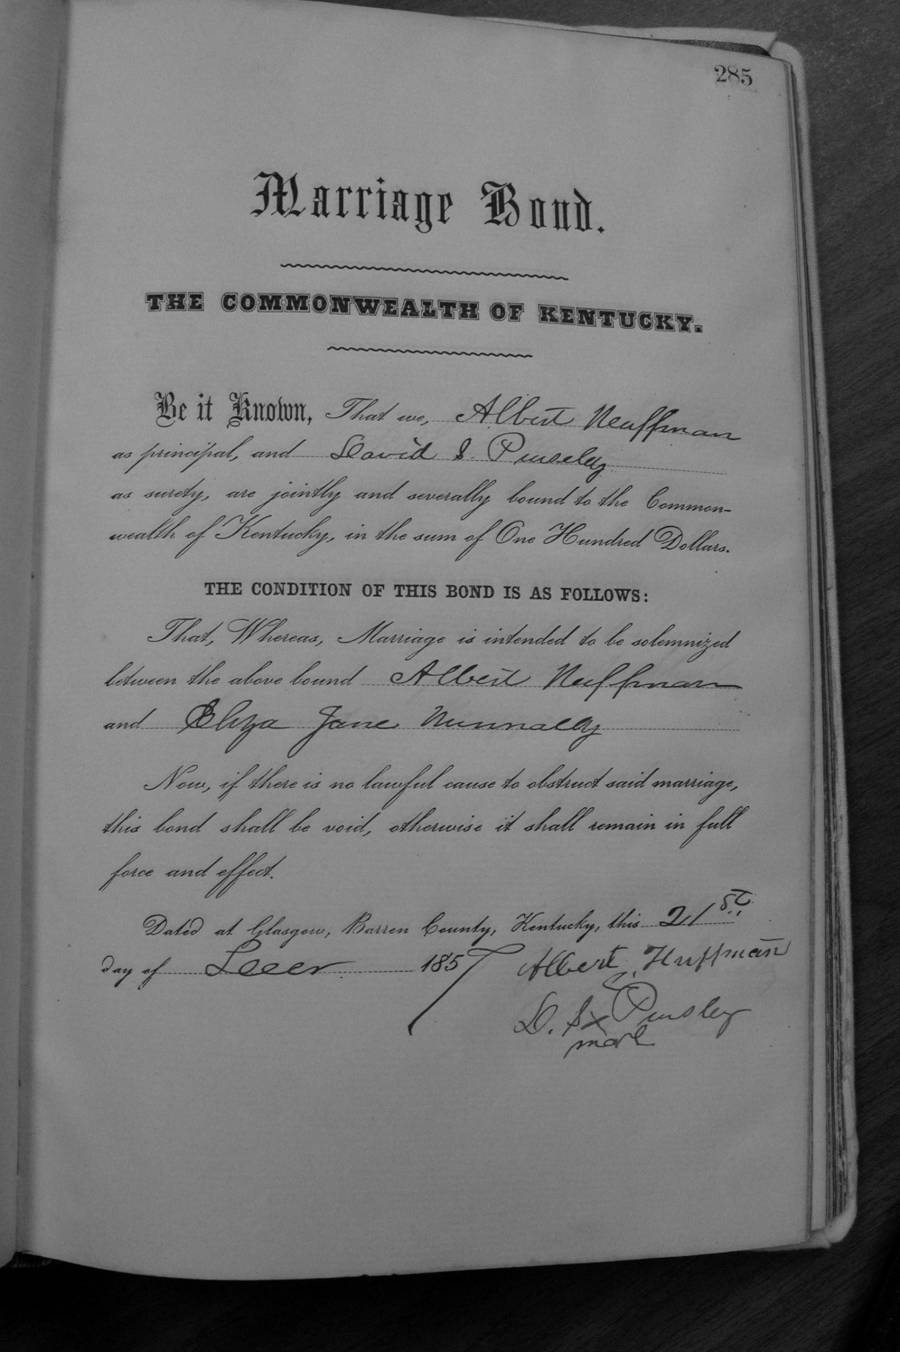 285
Marriage Bond.
THE COMMONWEALTH OF KENTUCKY.
Be it Known, That we, Albert Neuffman
as principal, and David S. Pursley
as surety, are jointly and severally bound to the Common-
wealth of Kentucky, in the sum of One Hundred Dollars.
THE CONDITION OF THIS BOND IS AS FOLLOWS:
That, Whereas, Marriage is intended to be solemnized
between the above bound Albert Huffman
and Eliza Jane Nunnally
Now, if there is no lawful cause to obstruct said marriage,
this bond shall be void, otherwise it shall remain in full
force and effect.
Dated at Glasgow, Barren County, Kentucky, this 21st
day of 1857 Albert Huffman
D. S x Pursley
mark